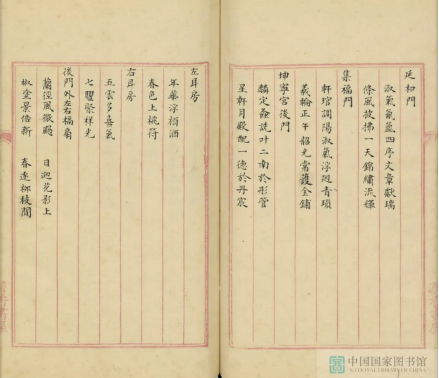 延和門
淑氣氤氳四序文章獻瑞
條風披拂一天錦繡流輝
集福門
軒琯調陽淑氣浮迎青瑣
羲輪正午韶光常護金鋪
坤寧宮後門
麟定螽詵叶二南於彤管
星軒月殿配一德於丹宸
左耳房
年華浮栢酒
春色上桃符
右耳房
五雲多喜氣
七曜聚祥光
後門外左右槅扇
蘭徑風微颺 日迴花影上
椒塗景倍新 春逐柳稊間
中国国家图书馆
NATIONAL LIBRARY OF CHINA